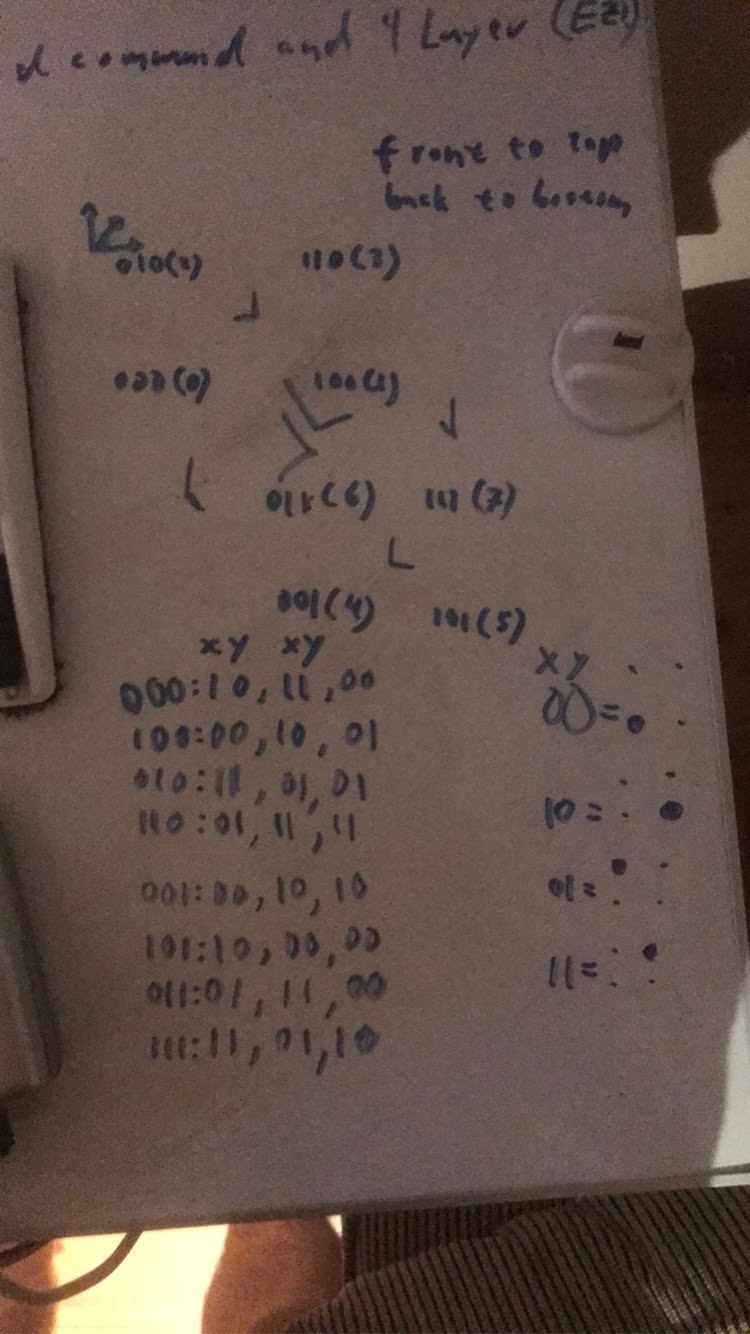 command and 4 Layer (EZ!)
front to top
back to bottom
010(2) 110(3)
000(0) 100(1)
011(6) 111(7)
001(4) 101(5)
xy xy
xy
000:10,11,00
00=
100:00,10,01
010:11,01,01
110:01,11,11
10=
001:00,10,10
01=
101:10,00,00
011:01,11,00
11=
111:11,01,10